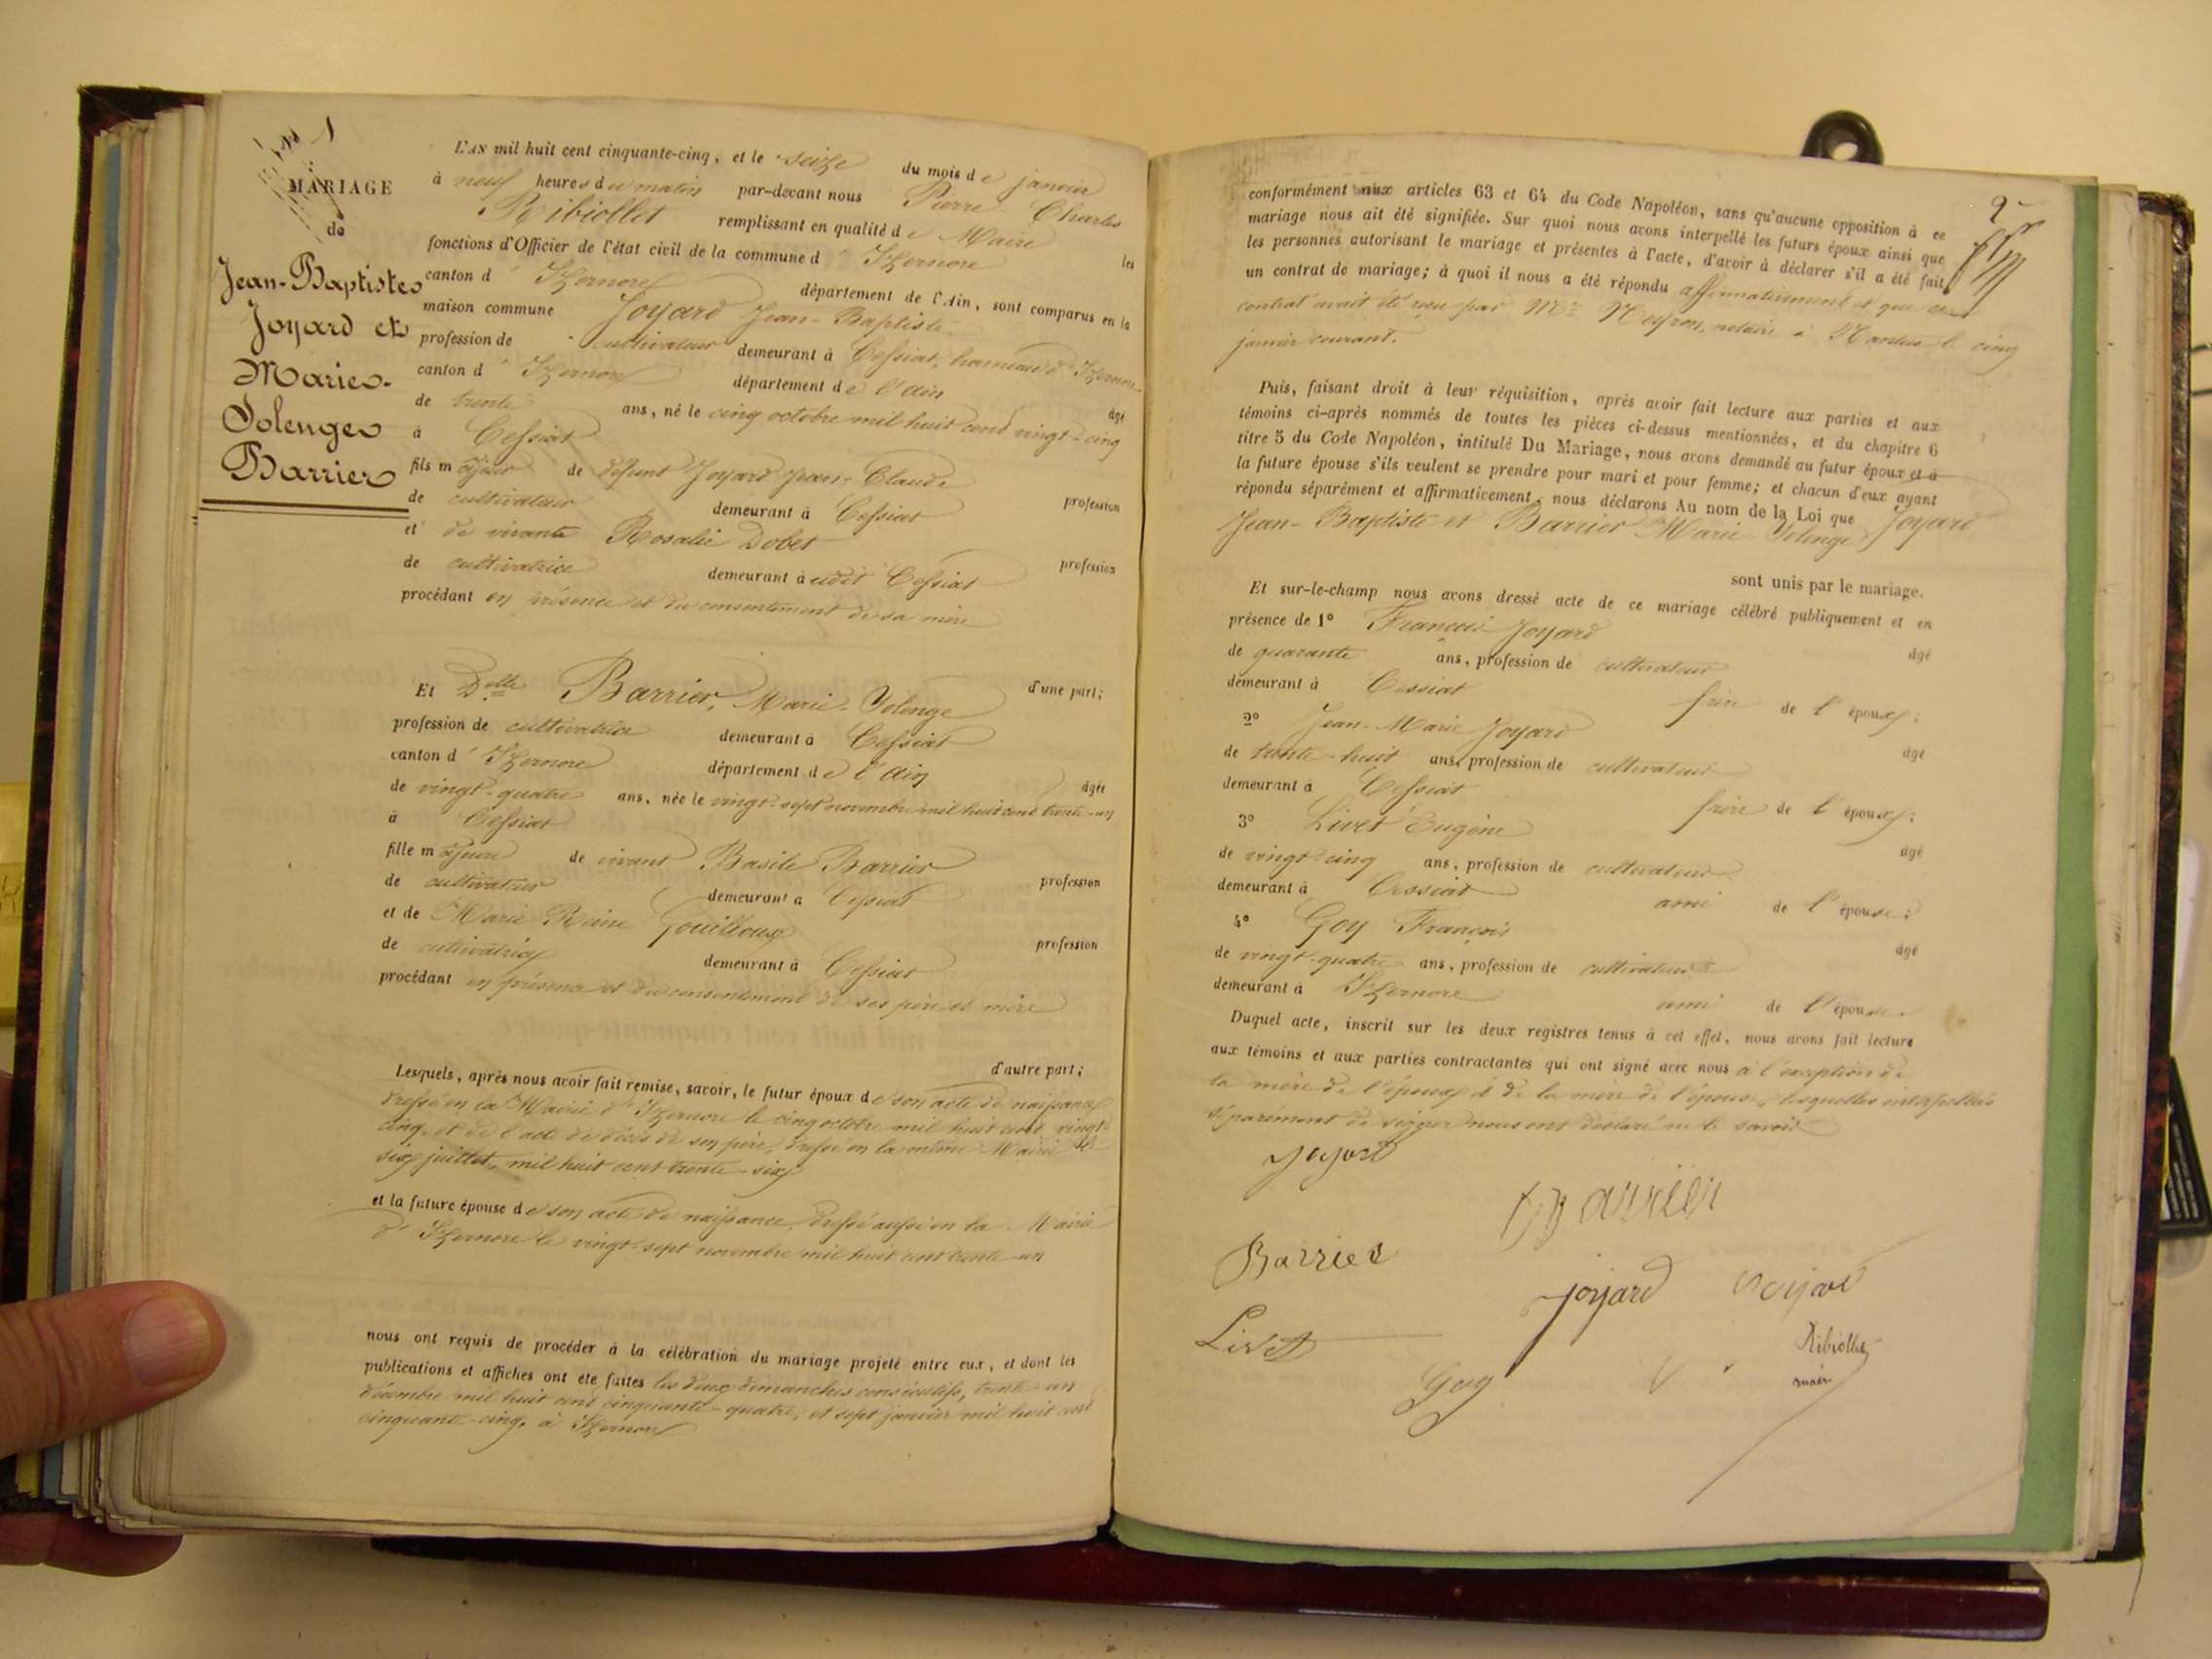 N° 1
MARIAGE
de
Jean-Baptiste
Joyard et
Marie-
Solenge
Barrier
L'AN mil huit cent cinquante-cinq, et le seize du mois de janvier
à neuf heures du matin par-devant nous Pierre-Charles
Ribiollet remplissant en qualité de Maire les
fonctions d'Officier de l'état civil de la commune d'Izernore
canton d'Izernore département de l'Ain, sont comparus en la
maison commune Joyard Jean-Baptiste
profession de cultivateur demeurant à Cessiat, hameau d'Izernore
canton d'Izernore département de l'Ain âgé
de trente ans, né le cinq octobre mil huit cent vingt-cinq
à Cessiat
fils majeur de défunt Joyard Jean-Claude profession
de cultivateur demeurant à Cessiat
et de vivante Rosalie Dobet profession
de cultivatrice demeurant audit Cessiat
procédant en présence et du consentement de sa mère
d'une part;
Et Delle Barrier, Marie-Solenge
profession de cultivatrice demeurant à Cessiat
canton d'Izernore département de l'Ain âgée
de vingt-quatre ans, née le vingt-sept novembre mil huit cent trente-un
à Cessiat
fille majeure de vivant Basile Barrier profession
de cultivateur demeurant à Cessiat
et de Marie Reine Gouilloux profession
de cultivatrice demeurant à Cessiat
procédant en présence et du consentement de ses père et mère
d'autre part;
Lesquels, après nous avoir fait remise, savoir, le futur époux de son acte de naissance
dressé en la Mairie d'Izernore le cinq octobre mil huit cent vingt-
cinq, et de l'acte de décès de son père, dressé en la même Mairie le
six juillet, mil huit cent trente-six
et la future épouse de son acte de naissance, dressé aussi en la Mairie
d'Izernore le vingt-sept novembre mil huit cent trente-un
nous ont requis de procéder à la célébration du mariage projeté entre eux, et dont les
publications et affiches ont été faites les deux dimanches consécutifs, trente-un
décembre mil huit cent cinquante-quatre, et sept janvier mil huit cent
cinquante-cinq, à Izernore
2
conformément aux articles 63 et 64 du Code Napoléon, sans qu'aucune opposition à ce
mariage nous ait été signifiée. Sur quoi nous avons interpellé les futurs époux ainsi que
les personnes autorisant le mariage et présentes à l'acte, d'avoir à déclarer s'il a été fait
un contrat de mariage; à quoi il nous a été répondu affirmativement et que ce
contrat avait été reçu par Me Neyron, notaire à Nantua le cinq
janvier courant.
Puis, faisant droit à leur réquisition, après avoir fait lecture aux parties et aux
témoins ci-après nommés de toutes les pièces ci-dessus mentionnées, et du chapitre 6
titre 5 du Code Napoléon, intitulé Du Mariage, nous avons demandé au futur époux et à
la future épouse s'ils veulent se prendre pour mari et pour femme; et chacun d'eux ayant
répondu séparément et affirmativement, nous déclarons Au nom de la Loi que Joyard
Jean-Baptiste et Barrier Marie Solenge
sont unis par le mariage.
Et sur-le-champ nous avons dressé acte de ce mariage célébré publiquement et en
présence de 1° François Joyard âgé
de quarante ans, profession de cultivateur
demeurant à Cessiat frère de l'époux;
2° Jean-Marie Joyard âgé
de trente-huit ans, profession de cultivateur
demeurant à Cessiat frère de l'époux;
3° Livet Eugène âgé
de vingt-cinq ans, profession de cultivateur
demeurant à Cessiat ami de l'épouse;
4° Goy François âgé
de vingt-quatre ans, profession de cultivateur
demeurant à Izernore ami de l'épouse.
Duquel acte, inscrit sur les deux registres tenus à cet effet, nous avons fait lecture
aux témoins et aux parties contractantes qui ont signé avec nous à l'exception de
la mère de l'époux et de la mère de l'épouse, lesquelles interpellées
séparément de signer nous ont déclaré ne le savoir
Joyard
Barrier
Barrier
joyard Joyard
Livet
Ribiollet
maire
Goy